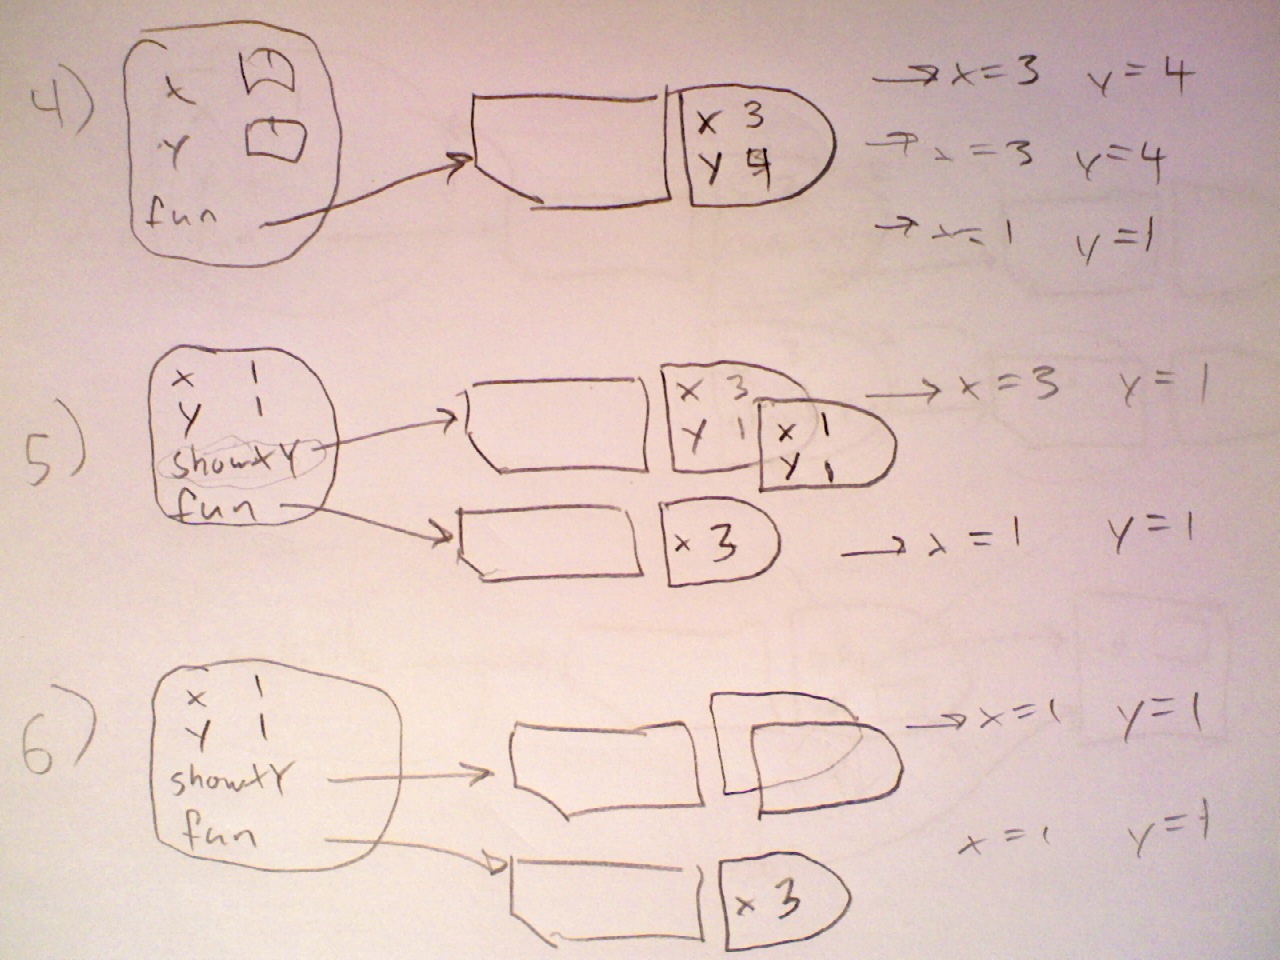 4)
x 1
y 1
fun
x 3
y 4
→ x = 3 y = 4
→ x = 3 y = 4
→ x = 1 y = 1
5)
x 1
y 1
showXY
fun
x 3
y 1
x 1
y 1
→ x = 3 y = 1
x 3
→ x = 1 y = 1
6)
x 1
y 1
showXY
fun
→ x = 1 y = 1
x = 1 y = 1
x 3